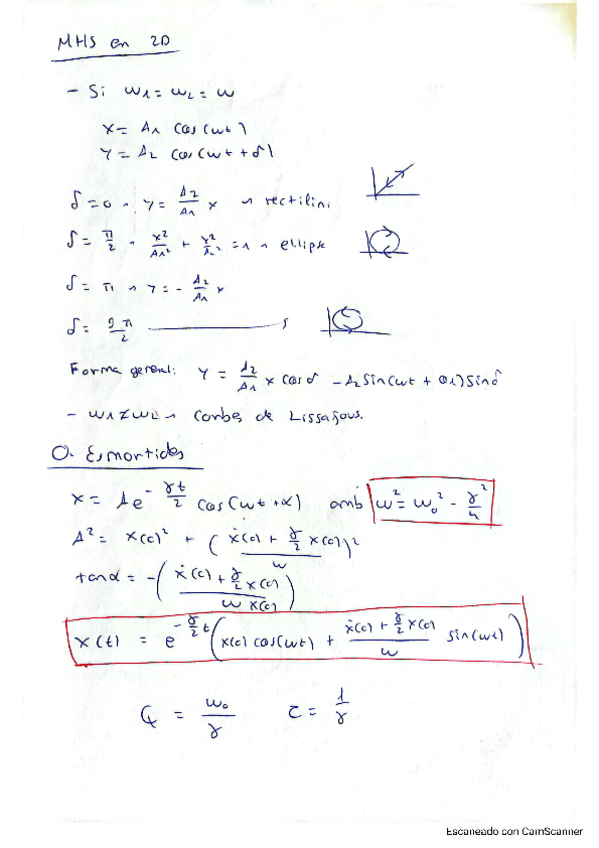 MHS en 2D
- Si ω1 = ω2 = ω
x = A1 cos(ωt)
y = A2 cos(ωt + δ)
δ = 0 → y = A2/A1 x → rectilini
δ = π/2 → x²/A1² + y²/A2² = 1 → ellipse
δ = π → y = - A2/A1 x
δ = 3π/2
Forma general: y = A2/A1 x cosδ - A2 sin(ωt + θ1) sinδ
- ω1 ≠ ω2 → Corbes de Lissajous.
O. Esmortides
x = A e^(-γt/2) cos(ωt + α) amb ω² = ω0² - γ²/4
A² = x(0)² + ((ẋ(0) + γ/2 x(0))/ω)²
tanα = -((ẋ(0) + γ/2 x(0))/(ω x(0)))
x(t) = e^(-γ/2 t) (x(0) cos(ωt) + (ẋ(0) + γ/2 x(0))/ω sin(ωt))
Q = ω0/γ τ = 1/γ
Escaneado con CamScanner